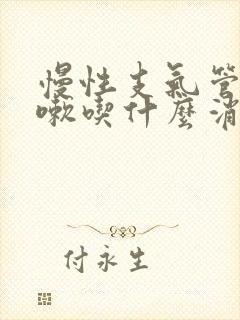 慢性支氣管
嗽喫什麼消
付永生